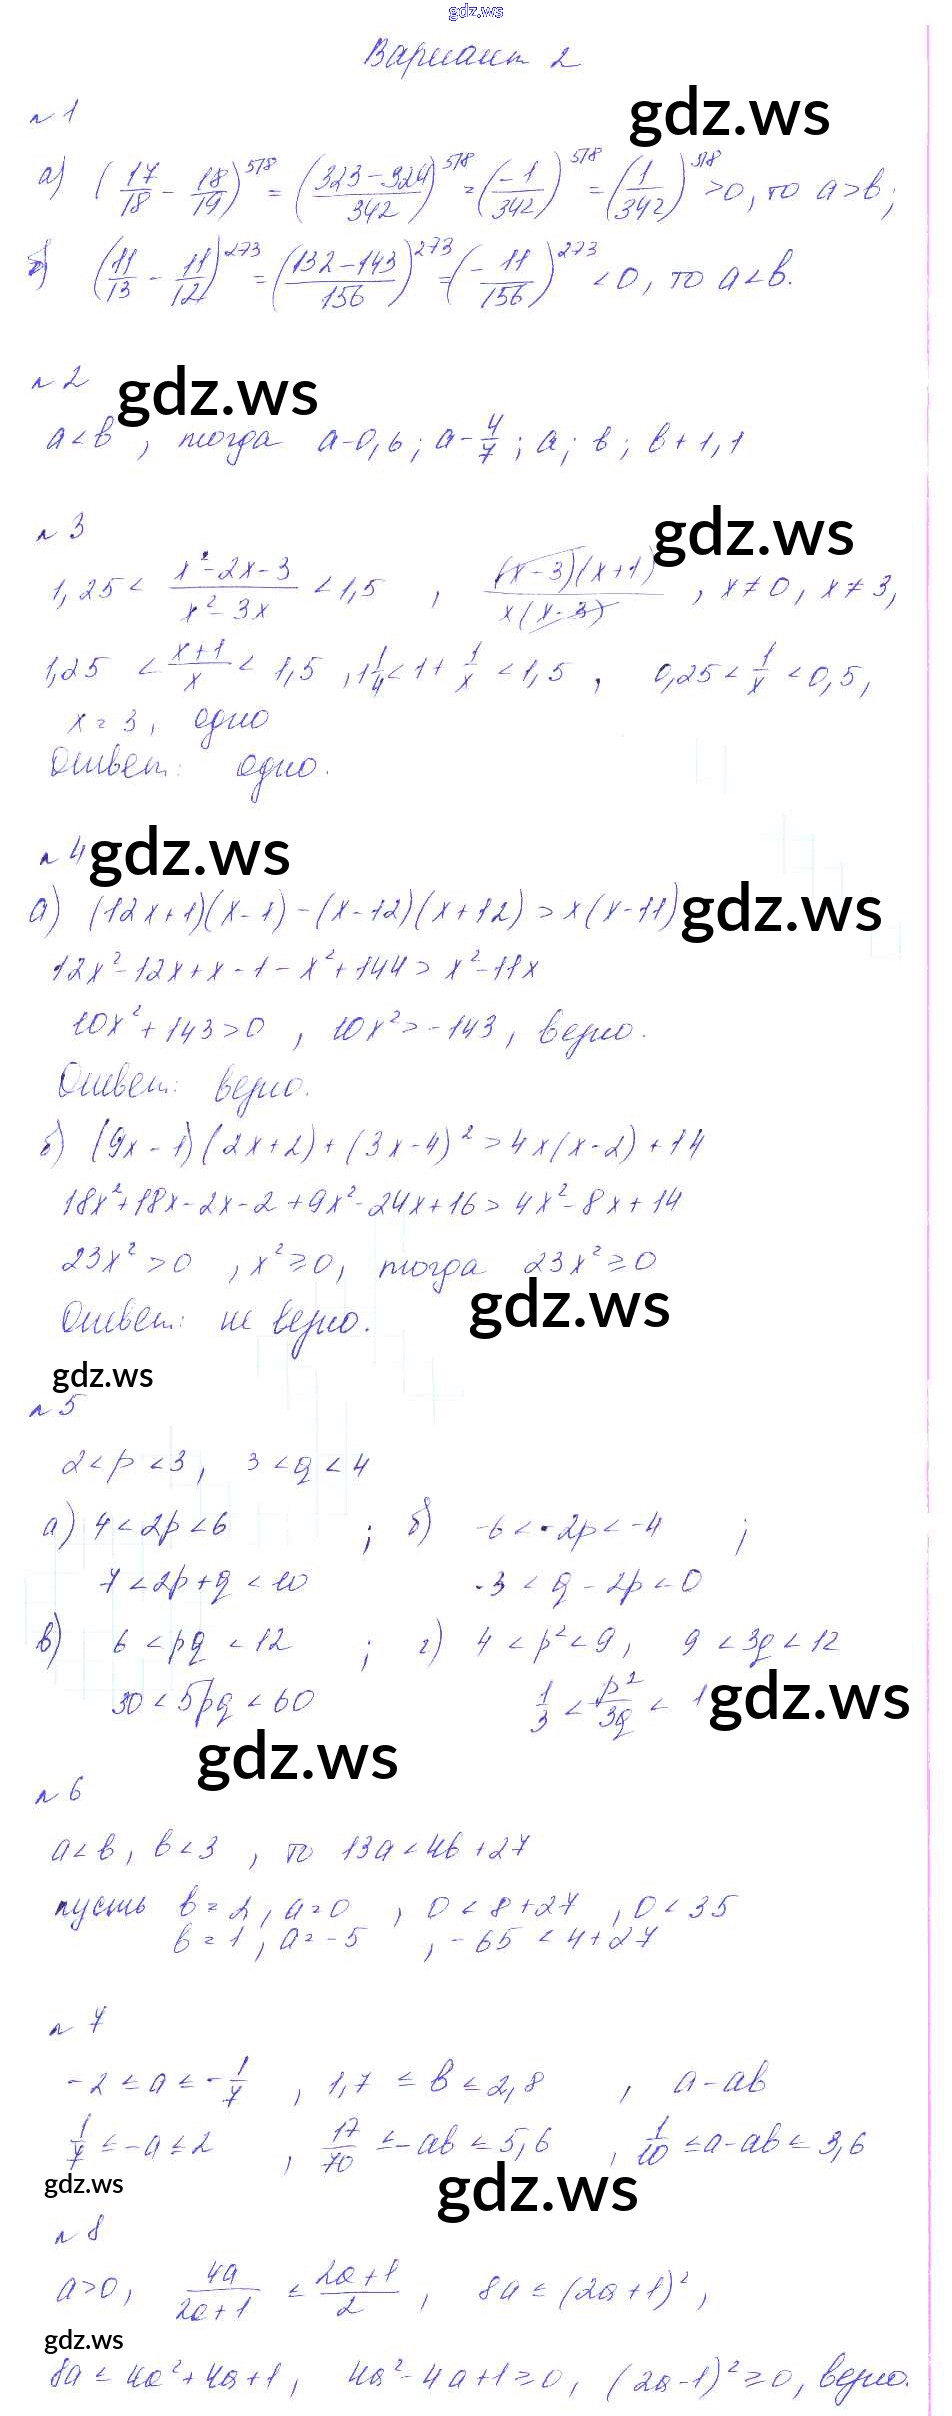 gdz.ws
Вариант 2
n 1
gdz.ws
а) (17/18 - 18/19)^578 = ((323-324)/342)^578 = (-1/342)^578 = (1/342)^578 > 0, то a>b;
б) (11/13 - 11/12)^273 = ((132-143)/156)^273 = (-11/156)^273 < 0, то a<b.
n 2
gdz.ws
a<b, тогда a-0,6; a-4/7; a; b; b+1,1
n 3
gdz.ws
1,25 < (x²-2x-3)/(x²-3x) < 1,5 , ((x-3)(x+1))/(x(x-3)) , x≠0, x≠3,
1,25 < (x+1)/x < 1,5 , 1 1/4 < 1+ 1/x < 1,5 , 0,25 < 1/x < 0,5,
x=3, одно
Ответ: одно.
n 4
gdz.ws
а) (12x+1)(x-1)-(x-12)(x+12) > x(x-11)
gdz.ws
12x²-12x+x-1-x²+144 > x²-11x
10x²+143>0 , 10x²>-143, верно.
Ответ: верно.
б) (9x-1)(2x+2)+(3x-4)² > 4x(x-2)+14
18x²+18x-2x-2+9x²-24x+16 > 4x²-8x+14
23x²>0 , x²≥0, тогда 23x²≥0
Ответ: не верно.
gdz.ws
gdz.ws
n 5
2<p<3, 3<q<4
а) 4<2p<6 ; б) -6<-2p<-4 ;
7<2p+q<10 -3<q-2p<0
в) 6<pq<12 ; г) 4<p²<9, 9<3q<12
30<5pq<60 1/3 < p²/3q < 1
gdz.ws
gdz.ws
n 6
a<b, b<3 , то 13a<4b+27
пусть b=2, a=0 , 0<8+27 , 0<35
b=1, a=-5 , -65<4+27
n 7
-2≤a≤-1/7 , 1,7≤b≤2,8 , a-ab
1/7≤-a≤2 , 17/70≤-ab≤5,6 , 1/10≤a-ab≤3,6
gdz.ws
gdz.ws
n 8
a>0, 4a/(2a+1) ≤ (2a+1)/2 , 8a≤(2a+1)²,
gdz.ws
8a≤4a²+4a+1, 4a²-4a+1≥0, (2a-1)²≥0, верно.